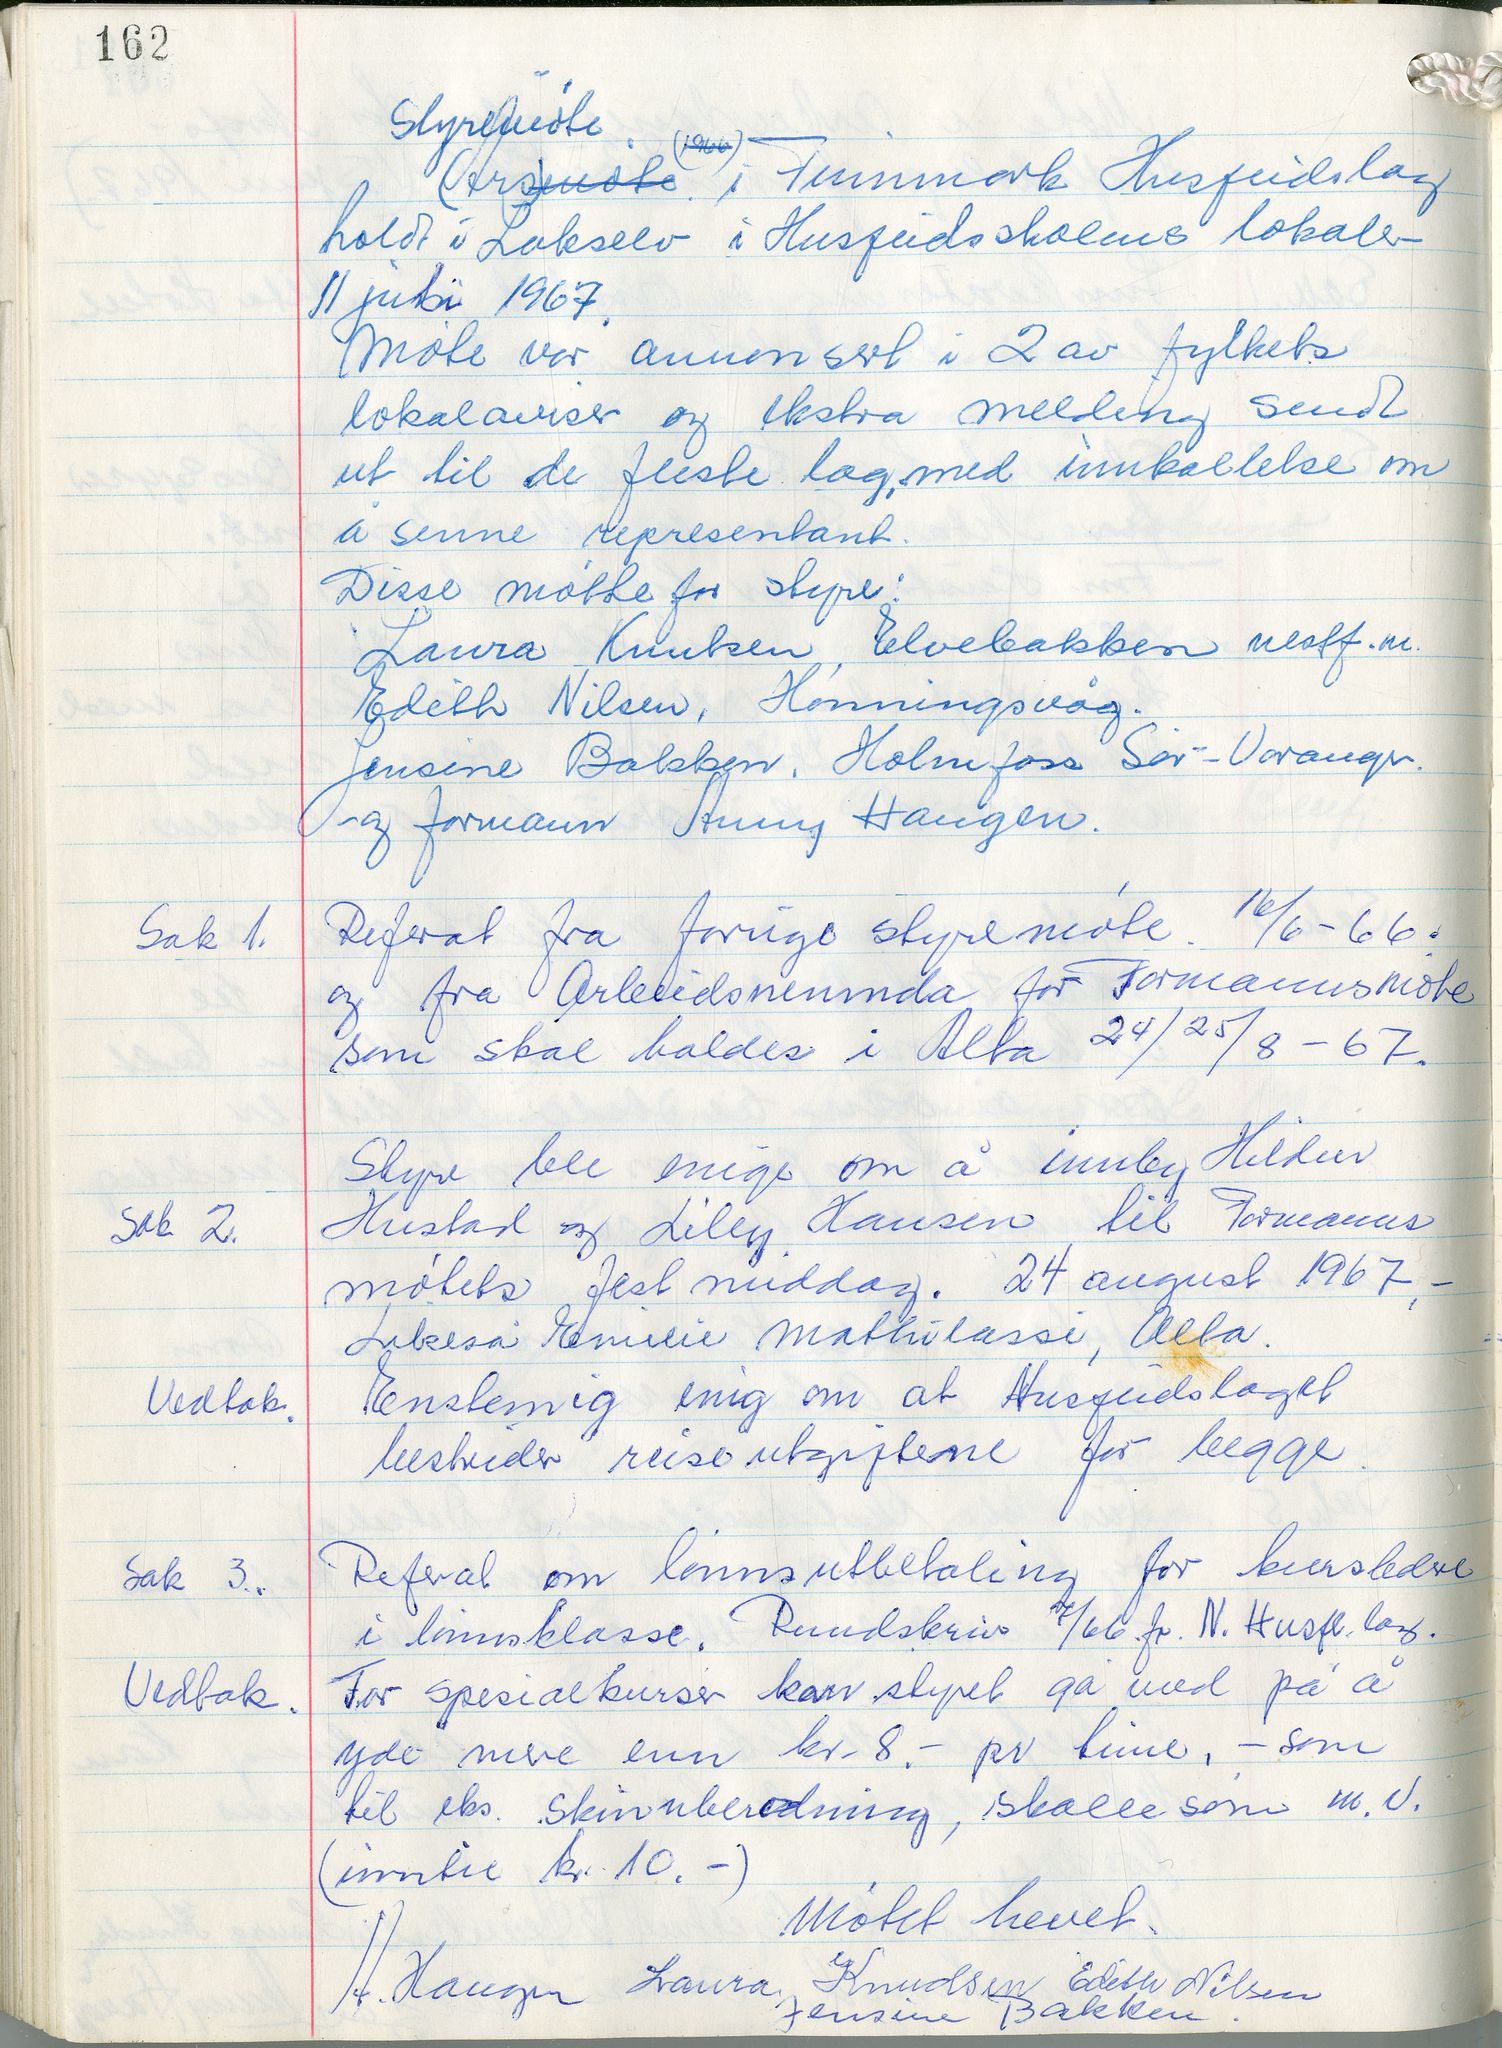 162
Styremöte
(Årsmöte (1966) i Finnmark Husflidslag
holdt i Lakselv i Husflidsskolens lokaler
11 juli 1967.
Möte var annonsert i 2 av fylkets
lokalaviser og ekstra melding sendt
ut til de fleste lag, med innkallelse om
å senne representant.
Disse mötte for styre:
Laura Knutsen, Elvebakken nestf.m.
Edith Nilsen, Honningsvåg.
Jensine Bakken, Holmfoss Sör-Varanger.
og formann Anny Haugen.
Sak 1. Referat fra forrige styremöte. 16/6-66.
og fra Arbeidsnemnda for Formannsmöte
som skal holdes i Alta 24/25/8-67.
Styre ble enige om å innby Hildur
Sak 2. Hustad og Lilly Hansen til Formanns
mötets festmiddag. 24 august 1967,-
Likeså Emilie Mathilassi, Alta.
Vedtak. Enstemig enig om at Husflidslaget
bestrider reiseutgiftene for begge.
Sak 3.. Referat om lönnsutbetaling for kursledere
i lönnsklasse. Rundskriv /66 fr. N. Husfl. lag.
Vedtak. For spesialkurser kan styret gå med på å
yde mere enn kr. 8.- pr time, - som
til eks. skinnberedning, skallesöm m.v.
(inntil kr. 10.-)
Mötet hevet.
A. Haugen Laura Knudsen Edith Nilsen
Jensine Bakken.